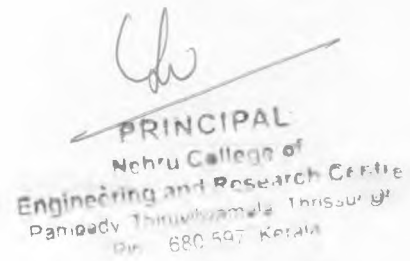 PRINCIPAL
Nehru College of
Engineering and Research Centre
Pampady Thiruvilwamala Thrissur
Pin 680 597 Kerala